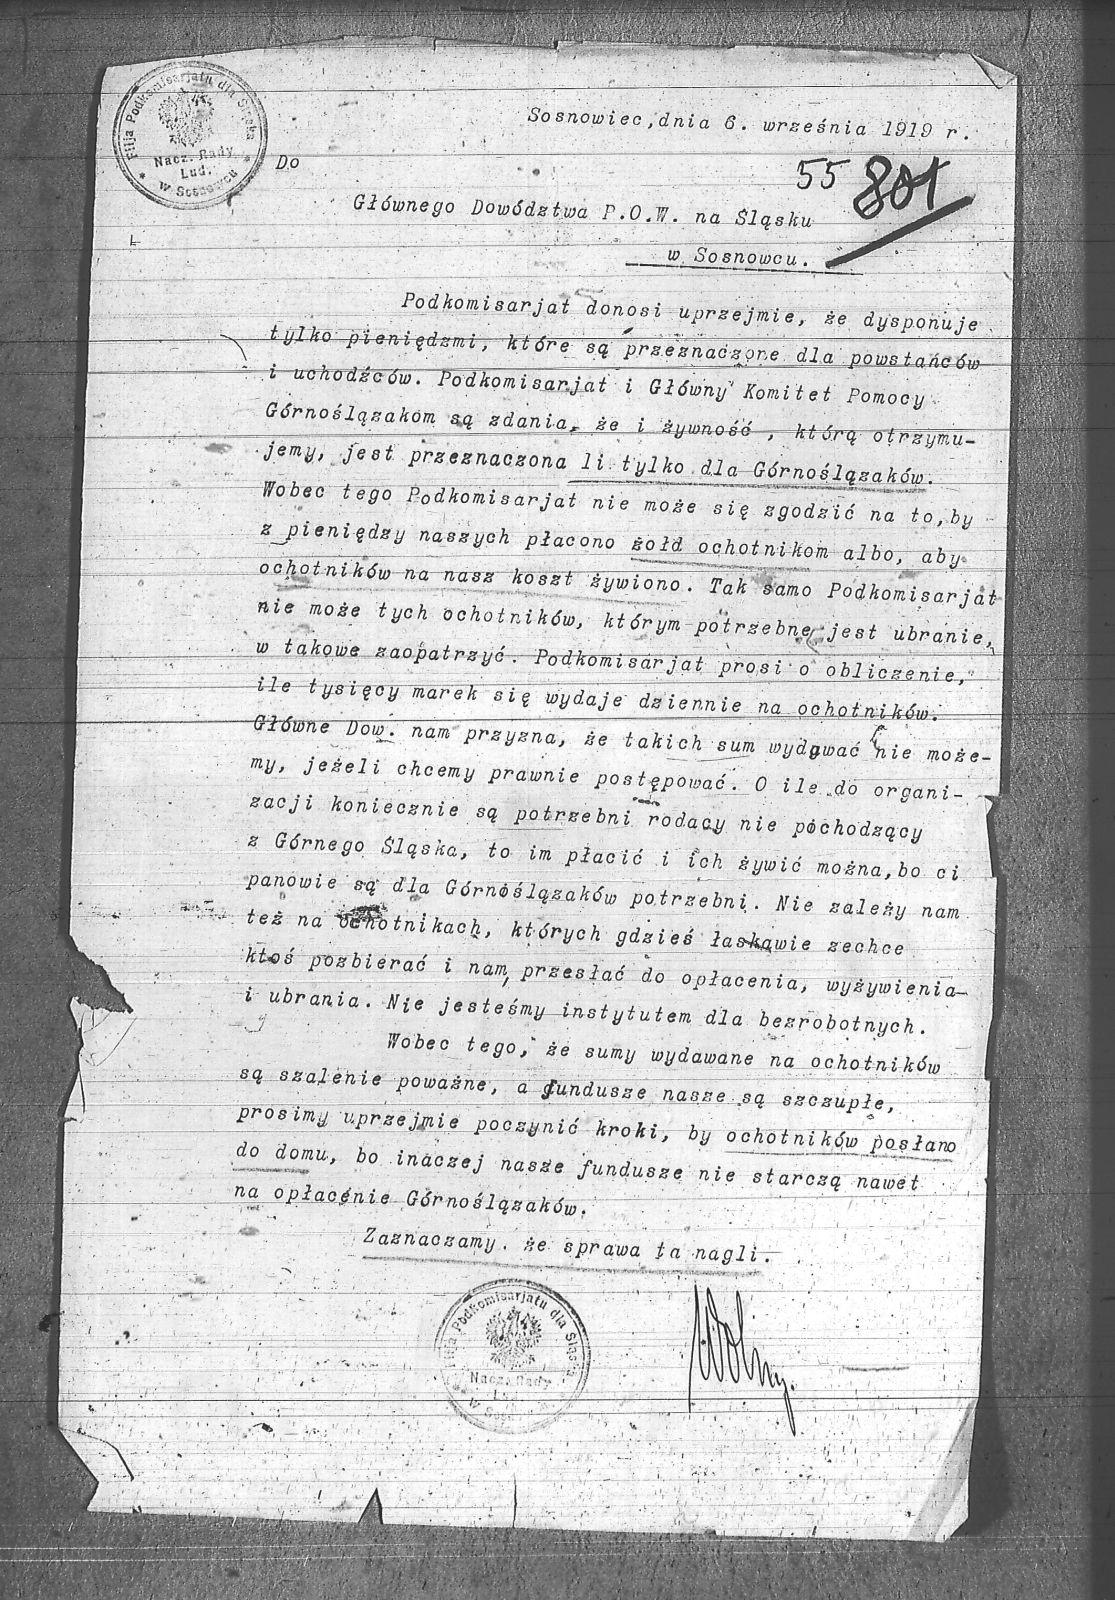 Filja Podkomisarjatu dla Śląska
Nacz. Rady
Lud.
* w Sosnowcu *
Sosnowiec, dnia 6. września 1919 r.
55 801
Do
Głównego Dowództwa P.O.W. na Śląsku
w Sosnowcu.
Podkomisarjat donosi uprzejmie, że dysponuje
tylko pieniędzmi, które są przeznaczone dla powstańców
i uchodźców. Podkomisarjat i Główny Komitet Pomocy
Górnoślązakom są zdania, że i żywność , którą otrzymu-
jemy, jest przeznaczona li tylko dla Górnoślązaków.
Wobec tego Podkomisarjat nie może się zgodzić na to, by
z pieniędzy naszych płacono żołd ochotnikom albo, aby
ochotników na nasz koszt żywiono. Tak samo Podkomisarjat
nie może tych ochotników, którym potrzebne jest ubranie,
w takowe zaopatrzyć. Podkomisarjat prosi o obliczenie,
ile tysięcy marek się wydaje dziennie na ochotników.
Główne Dow. nam przyzna, że takich sum wydawać nie może-
my, jeżeli chcemy prawnie postępować. O ile do organi-
zacji koniecznie są potrzebni rodacy nie pochodzący
z Górnego Śląska, to im płacić i ich żywić można, bo ci
panowie są dla Górnoślązaków potrzebni. Nie zależy nam
też na ochotnikach, których gdzieś łaskawie zechce
ktoś pozbierać i nam, przesłać do opłacenia, wyżywienia
i ubrania. Nie jesteśmy instytutem dla bezrobotnych.
Wobec tego, że sumy wydawane na ochotników
są szalenie poważne, a fundusze nasze są szczupłe,
prosimy uprzejmie poczynić kroki, by ochotników posłano
do domu, bo inaczej nasze fundusze nie starczą nawet
na opłacenie Górnoślązaków.
Zaznaczamy. że sprawa ta nagli.
Filja Podkomisarjatu dla Śląska
Nacz. Rady
Wolny.